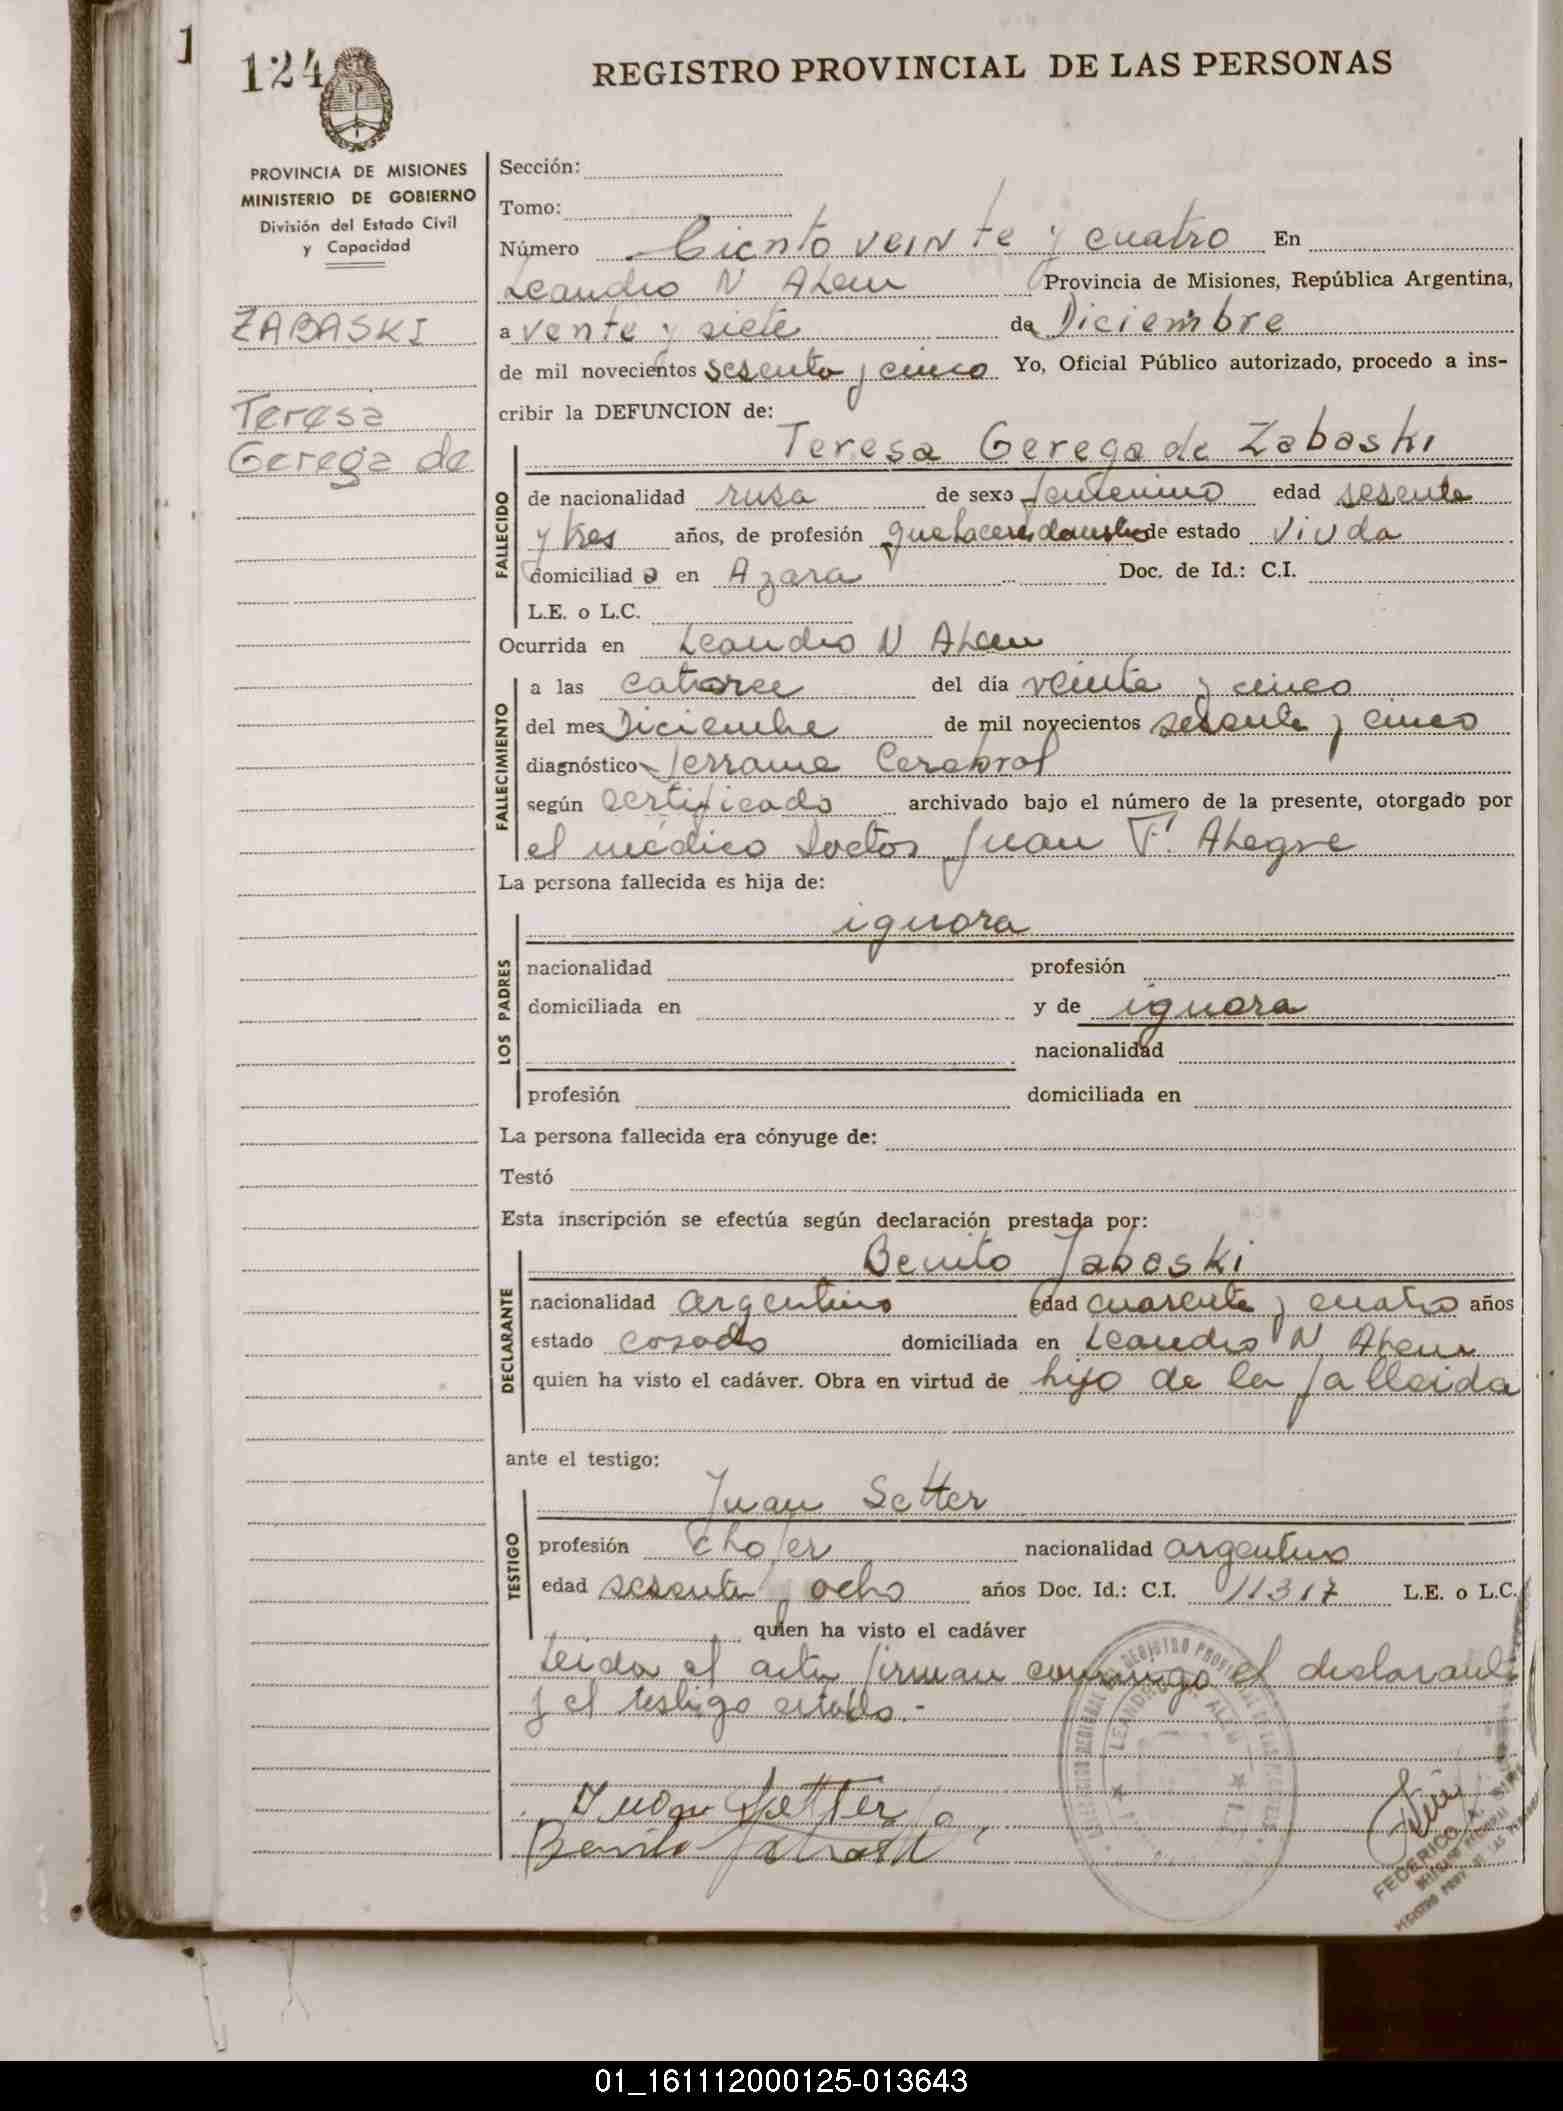 1
124
REGISTRO PROVINCIAL DE LAS PERSONAS
PROVINCIA DE MISIONES
MINISTERIO DE GOBIERNO
División del Estado Civil
y Capacidad
ZABASKI
Teresa
Gerega de
Sección:
Tomo:
Número Ciento veinte y cuatro En
Leandro N Alem Provincia de Misiones, República Argentina,
a vente y siete de Diciembre
de mil novecientos sesenta y cinco Yo, Oficial Público autorizado, procedo a ins-
cribir la DEFUNCION de:
Teresa Gerega de Zabaski
FALLECIDO
de nacionalidad rusa de sexo femenino edad sesenta
y tres años, de profesión quehaceres de estado viuda
domiciliad a en Azara Doc. de Id.: C.I.
L.E. o L.C.
Ocurrida en Leandro N Alem
FALLECIMIENTO
a las catorce del día veinte y cinco
del mes Diciembre de mil novecientos sesenta y cinco
diagnóstico Derrame Cerebral
según certificado archivado bajo el número de la presente, otorgado por
el médico Doctor Juan F. Alegre
La persona fallecida es hija de:
LOS PADRES
ignora
nacionalidad profesión
domiciliada en y de ignora
nacionalidad
profesión domiciliada en
La persona fallecida era cónyuge de:
Testó
Esta inscripción se efectúa según declaración prestada por:
DECLARANTE
Benito Zabaski
nacionalidad argentino edad cuarenta y cuatro años
estado casado domiciliada en Leandro N Alem
quien ha visto el cadáver. Obra en virtud de hijo de la fallecida
ante el testigo:
TESTIGO
Juan Setter
profesión chofer nacionalidad argentino
edad sesenta y ocho años Doc. Id.: C.I. 11317 L.E. o L.C.
quien ha visto el cadáver
Leida el acta firman conmigo el declarante
y el testigo citado.-
Juan Setter
Benito Zabaski
LEANDRO N. ALEM
FEDERICO A.
01_161112000125-013643